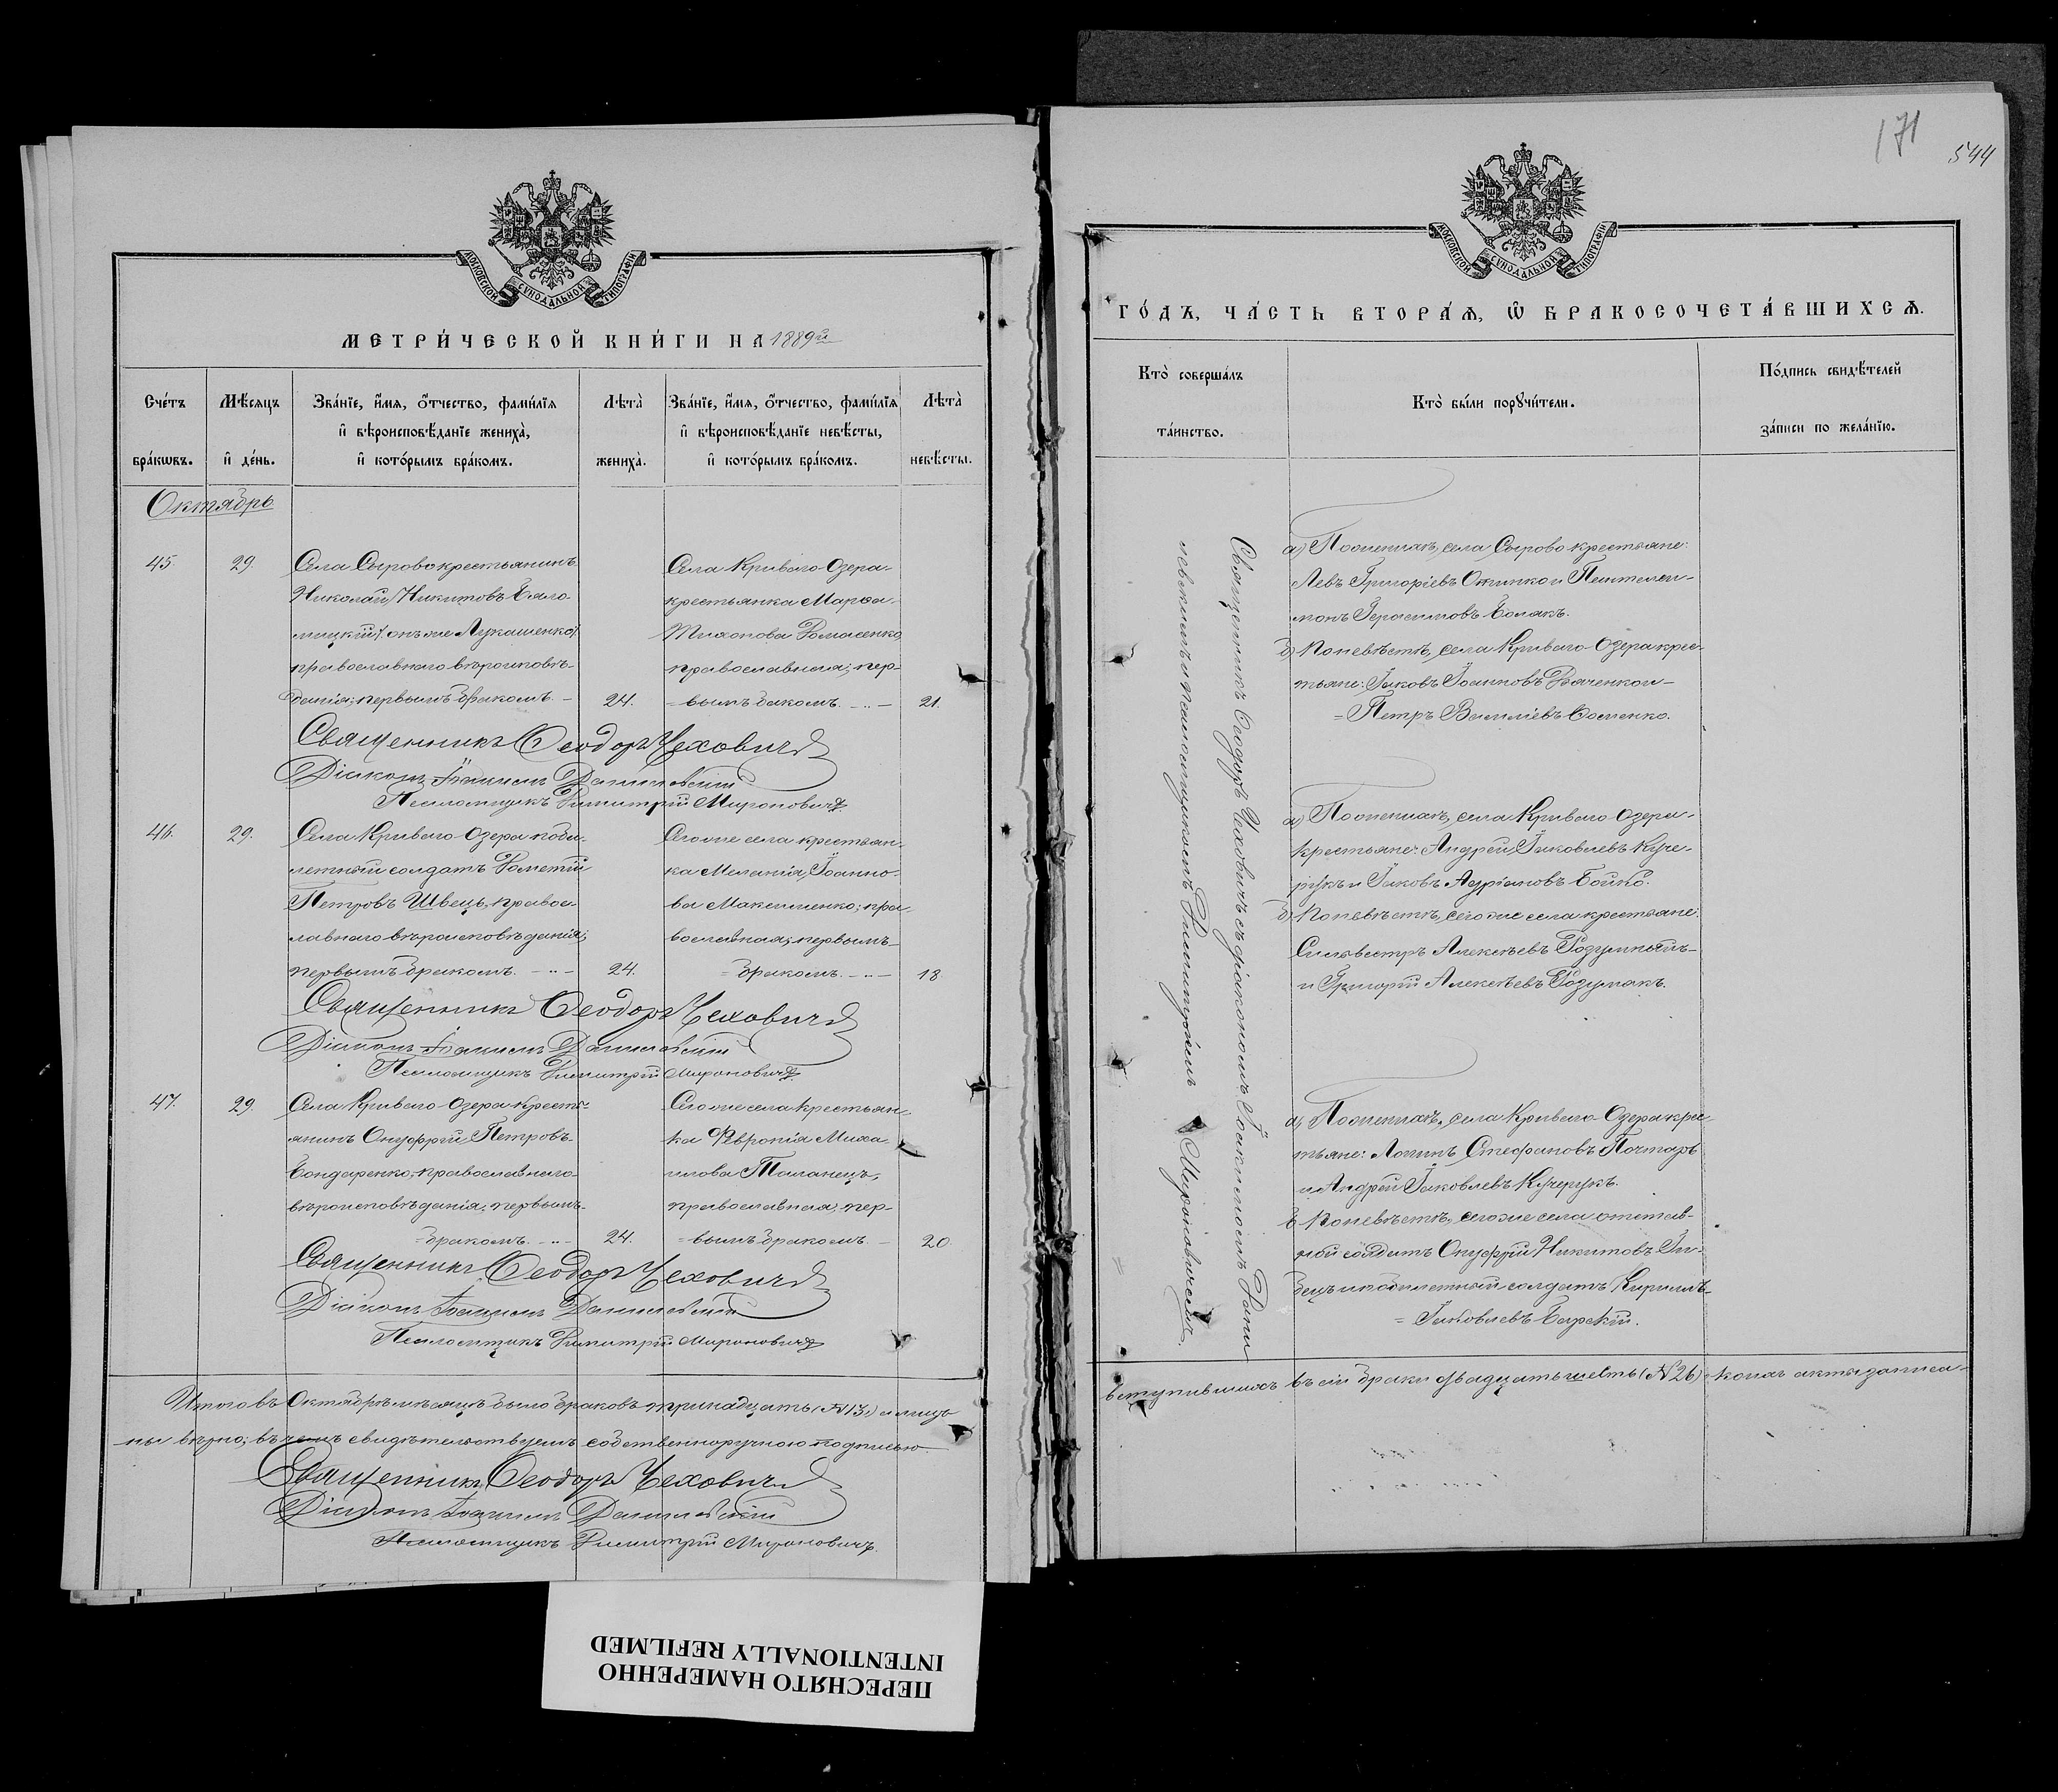 МОСКОВСКОЙ СУНОДАЛЬНОЙ ТИПОГРАФІИ
МЕТРИ́ЧЕСКОЙ КНИ́ГИ НА 1889й
Сче́тъ бра́кѡвъ.
Мѣ́сяцъ и҆ де́нь.
Зва́нїе, и҆́мя, ѻ҆́тчество, фами́лїя
и҆ вѣроисповѣ́данїе жениха̀,
и҆ кото́рымъ бра́комъ.
Лѣта̀ жениха̀.
Зва́нїе, и҆́мя, ѻ҆́тчество, фами́лїя
и҆ вѣроисповѣ́данїе невѣ́сты,
и҆ кото́рымъ бра́комъ.
Лѣта̀ невѣ́сты.
Октябрь
45
29.
Села Сырово крестьянинъ
Николай Никитовъ Бяло-
мицкій (онъ же Лукашенко)
православнаго вѣроисповѣ-
данія; первымъ бракомъ. –
24.
Села Криваго-Озера-
крестьянка Марѳа-
Тихонова
православная; пер-
=вымъ бакомъ. –
21.
Священникъ Ѳеодоръ Чеховичъ
Діаконъ Іоакимъ Данилевскій
Псаломщикъ Димитрій Мироновичъ
46.
29.
Села Криваго-Озера побы-
летный солдатъ Дометій
Петровъ Швець, правос-
лавнаго вѣроисповѣданія;
первымъ бракомъ. – " –
24.
Сего же села крестьян-
ка Меланія Іоанно-
ва Максименко; пра-
вославная; первымъ-
=бракомъ. – " –
18
Священникъ Ѳеодоръ Чеховичъ
Діаконъ Іоакимъ Данилевскій
Псаломщикъ Димитрій Мироновичъ
47.
29.
Села Криваго-Озера кресть-
янинъ Онуфрій Петровъ-
Бондаренко, православнаго-
вѣроисповѣданія; первымъ-
=бракомъ. – " –
24.
Сего же села крестьян-
ка Февронія Миха-
илова Таланецъ,
православная; пер-
=вымъ бракомъ. –
20.
Священникъ Ѳеодоръ Чеховичъ
Діаконъ Іоакимъ Данилевскій
Псаломщикъ Димитрій Мироновичъ
Итого въ Октябрѣ мѣсяцѣ было браковъ тринадцать (№13) а лицъ
ны вѣрно; въ чемъ свидѣтельствуемъ собственноручною подписью
Священникъ Ѳеодоръ Чеховичъ
Діаконъ Іоакимъ Данилевскій
Псаломщикъ Димитрій Мироновичъ.
171
544
МОСКОВСКОЙ СУНОДАЛЬНОЙ ТИПОГРАФІИ
ГО́ДЪ, ЧА́СТЬ ВТОРА́Ѧ, Ѡ҆ БРАКОСОЧЕТА́ВШИХСѦ.
Кто̀ соверша́лъ та́инство.
Кто̀ бы́ли порꙋчи́тели.
По́дпись свидѣ́телей за́писи по жела́нїю.
Священникъ Ѳеодоръ Чеховичъ съ діакономъ Іоакимомъ Дани
левскимъ и псаломщикомъ Димитріемъ Мироновичемъ.
а) По женихѣ, села Сырово крестьяне:
Левъ Григоріевъ и Пантелеи-
монъ Герасимовъ
б) По невѣстѣ, села Криваго-Озера крес-
тьяне: Іаковъ Іоанновъ Дяченко и –
=Петръ Василіевъ
а) По женихѣ, села Криваго-Озера-
крестьяне: Андрей Іаковлевъ Куче-
рукъ и Іаковъ Адріановъ Бойко.
б) По невѣстѣ, сего же села крестьяне:
Сильвестръ Алексѣевъ
и Григорій Алексѣевъ
а) По женихѣ, села Криваго-Озера крес-
тьяне: Логинъ Стефановъ Почтарь
и Андрей Іаковлевъ Кучерукъ.
б) По невѣстѣ, сего же села отстав-
ной солдатъ Онуфрій Никитовъ
и побилетный солдатъ Кириллъ-
= Іаковлевъ Барскій.
вступившихъ въ сіи браки двадцать шесть (№26) коихъ акты записа-
ПЕРЕСНЯТО НАМЕРЕННО
INTENTIONALLY REFILMED